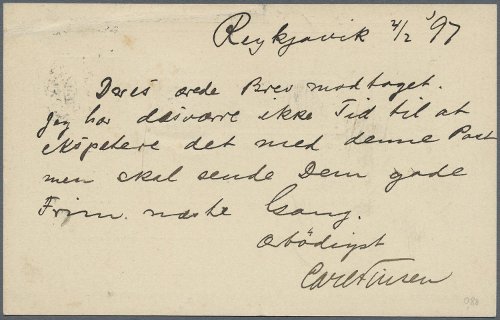 Reykjavik 4/2 '97
Deres ærede Brev modtaget.
Jeg har desværre ikke Tid til at
ekspedere det med denne Post
men skal sende Dem gode
Frim. næste Gang.
Ærbödigst
Carl Finsen